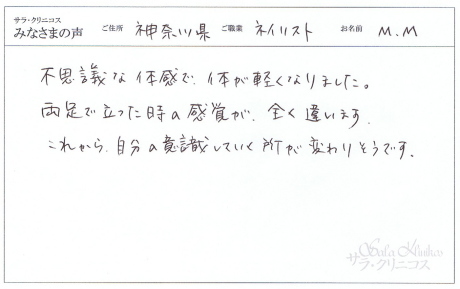 サラ・クリニコス
みなさまの声 ご住所 神奈川県 ご職業 ネイリスト お名前 M.M
不思議な体感で、体が軽くなりました。
両足で立った時の感覚が、全く違います。
これから、自分の意識していく所が変わりそうです。
Sala Klinikos
サラ・クリニコス